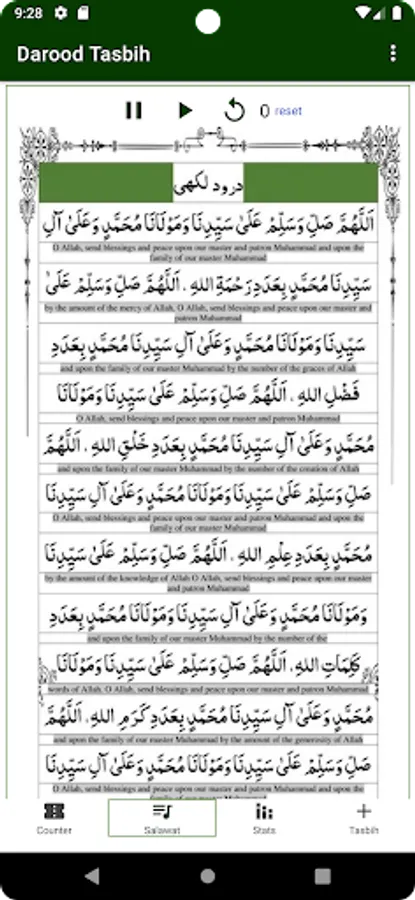 9:28
Darood Tasbih
0 reset
درود لکھی
اَللّٰهُمَّ صَلِّ وَسَلِّمْ عَلىٰ سَيِّدِنَا وَمَوْلَانَا مُحَمَّدٍ وَعَلىٰ آلِ
O Allah, send blessings and peace upon our master and patron Muhammad and upon the
family of our master Muhammad
سَيِّدِنَا مُحَمَّدٍ بِعَدَدِ رَحْمَةِ اللهِ ، اَللّٰهُمَّ صَلِّ وَسَلِّمْ عَلىٰ
by the amount of the mercy of Allah, O Allah, send blessings and peace upon our master and
patron Muhammad
سَيِّدِنَا وَمَوْلَانَا مُحَمَّدٍ وَعَلىٰ آلِ سَيِّدِنَا مُحَمَّدٍ بِعَدَدِ
and upon the family of our master Muhammad by the number of the graces of Allah
فَضْلِ اللهِ ، اَللّٰهُمَّ صَلِّ وَسَلِّمْ عَلىٰ سَيِّدِنَا وَمَوْلَانَا
O Allah, send blessings and peace upon our master and patron Muhammad
مُحَمَّدٍ وَعَلىٰ آلِ سَيِّدِنَا مُحَمَّدٍ بِعَدَدِ خَلْقِ اللهِ ، اَللّٰهُمَّ
and upon the family of our master Muhammad by the number of the creation of Allah
صَلِّ وَسَلِّمْ عَلىٰ سَيِّدِنَا وَمَوْلَانَا مُحَمَّدٍ وَعَلىٰ آلِ سَيِّدِنَا
O Allah, send blessings and peace upon our master and patron Muhammad and upon the
family of our master Muhammad
مُحَمَّدٍ بِعَدَدِ عِلْمِ اللهِ ، اَللّٰهُمَّ صَلِّ وَسَلِّمْ عَلىٰ سَيِّدِنَا
by the amount of the knowledge of Allah O Allah, send blessings and peace upon our master
and patron Muhammad
وَمَوْلَانَا مُحَمَّدٍ وَعَلىٰ آلِ سَيِّدِنَا وَمَوْلَانَا مُحَمَّدٍ بِعَدَدِ
and upon the family of our master Muhammad by the number of the
كَلِمَاتِ اللهِ ، اَللّٰهُمَّ صَلِّ وَسَلِّمْ عَلىٰ سَيِّدِنَا وَمَوْلَانَا
words of Allah, O Allah, send blessings and peace upon our master and patron Muhammad
مُحَمَّدٍ وَعَلىٰ آلِ سَيِّدِنَا مُحَمَّدٍ بِعَدَدِ كَرَمِ اللهِ ، اَللّٰهُمَّ
and upon the family of our master Muhammad by the amount of the generosity of Allah
صَلِّ وَسَلِّمْ عَلىٰ سَيِّدِنَا وَمَوْلَانَا مُحَمَّدٍ وَعَلىٰ آلِ سَيِّدِنَا
O Allah, send blessings and peace upon our master and patron Muhammad and upon the
Counter
Salawat
Stats
Tasbih